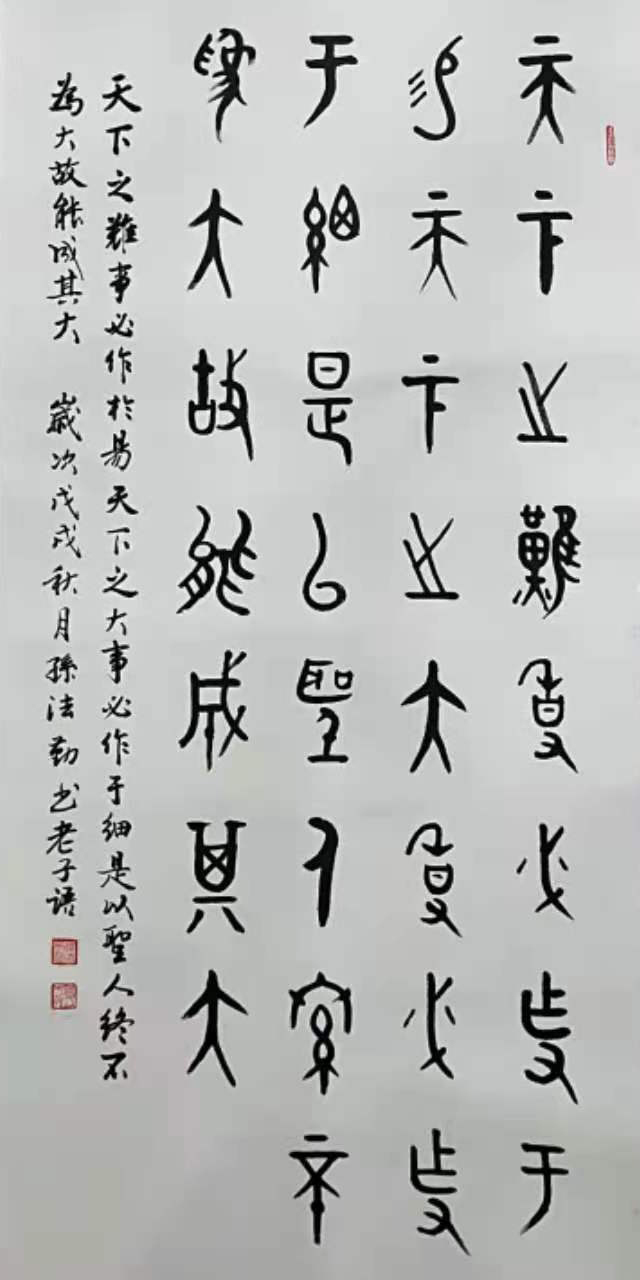 天下之難事必作于
易天下之大事必作
于細是以聖人終不
為大故能成其大
天下之難事必作於易天下之大事必作于細是以聖人終不
為大故能成其大 歲次戊戌秋月孫法勤书老子语